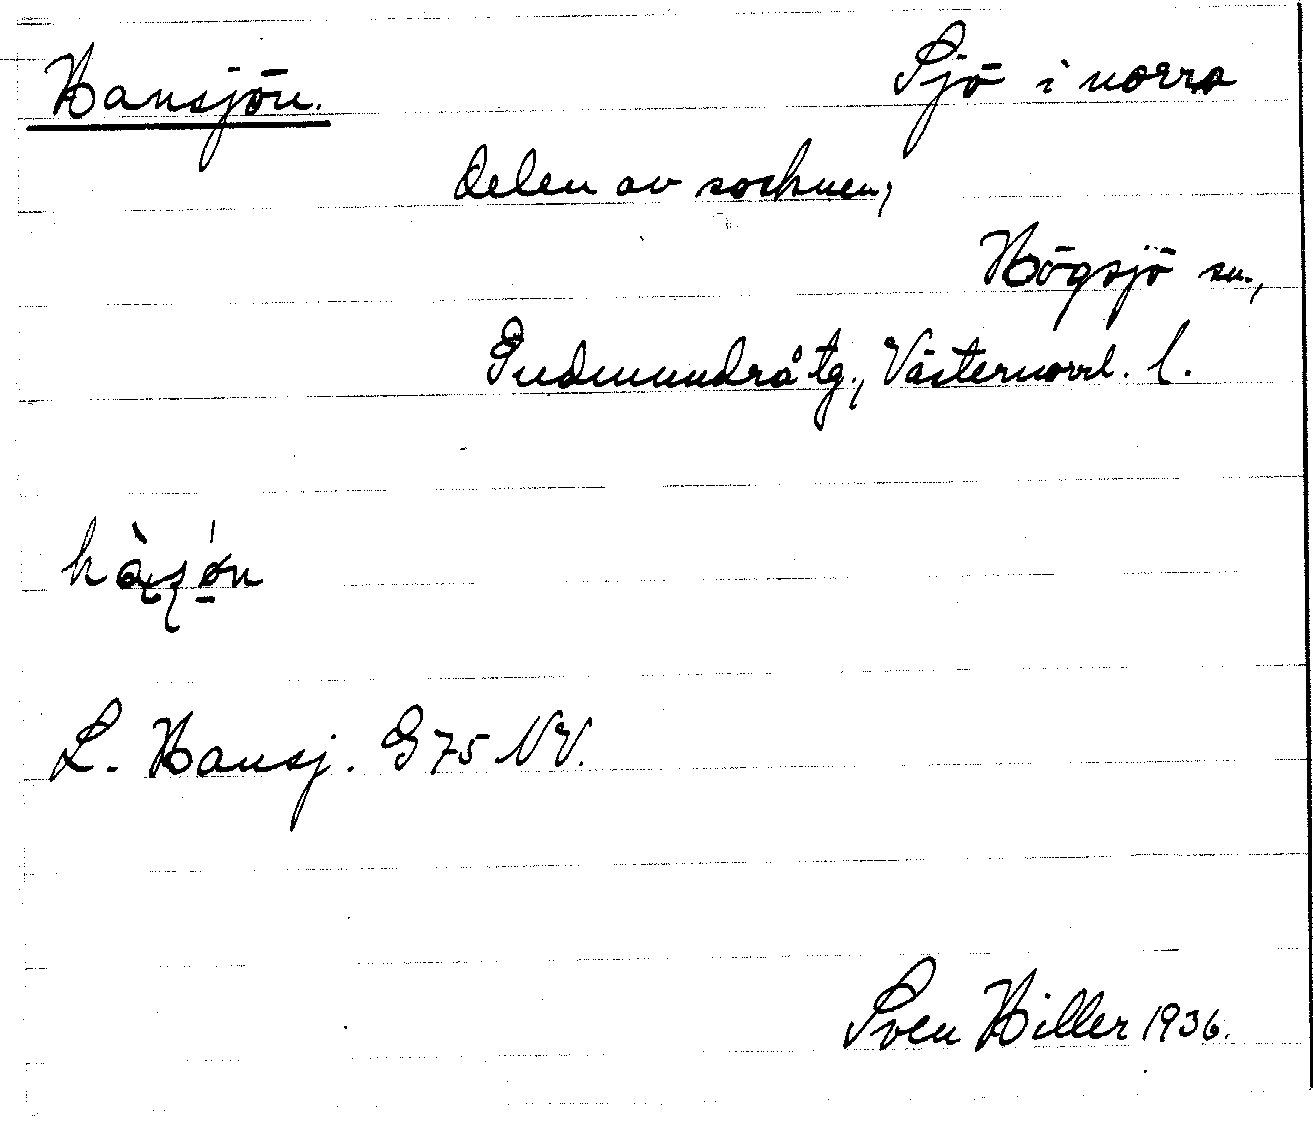 Hansjön. Sjö i norra
delen av socknen,
Högsjö sn.,
Gudmundrå tg., Västernorrl. l.
L. Hansj. G 75 NV.
Sven Hiller 1936.